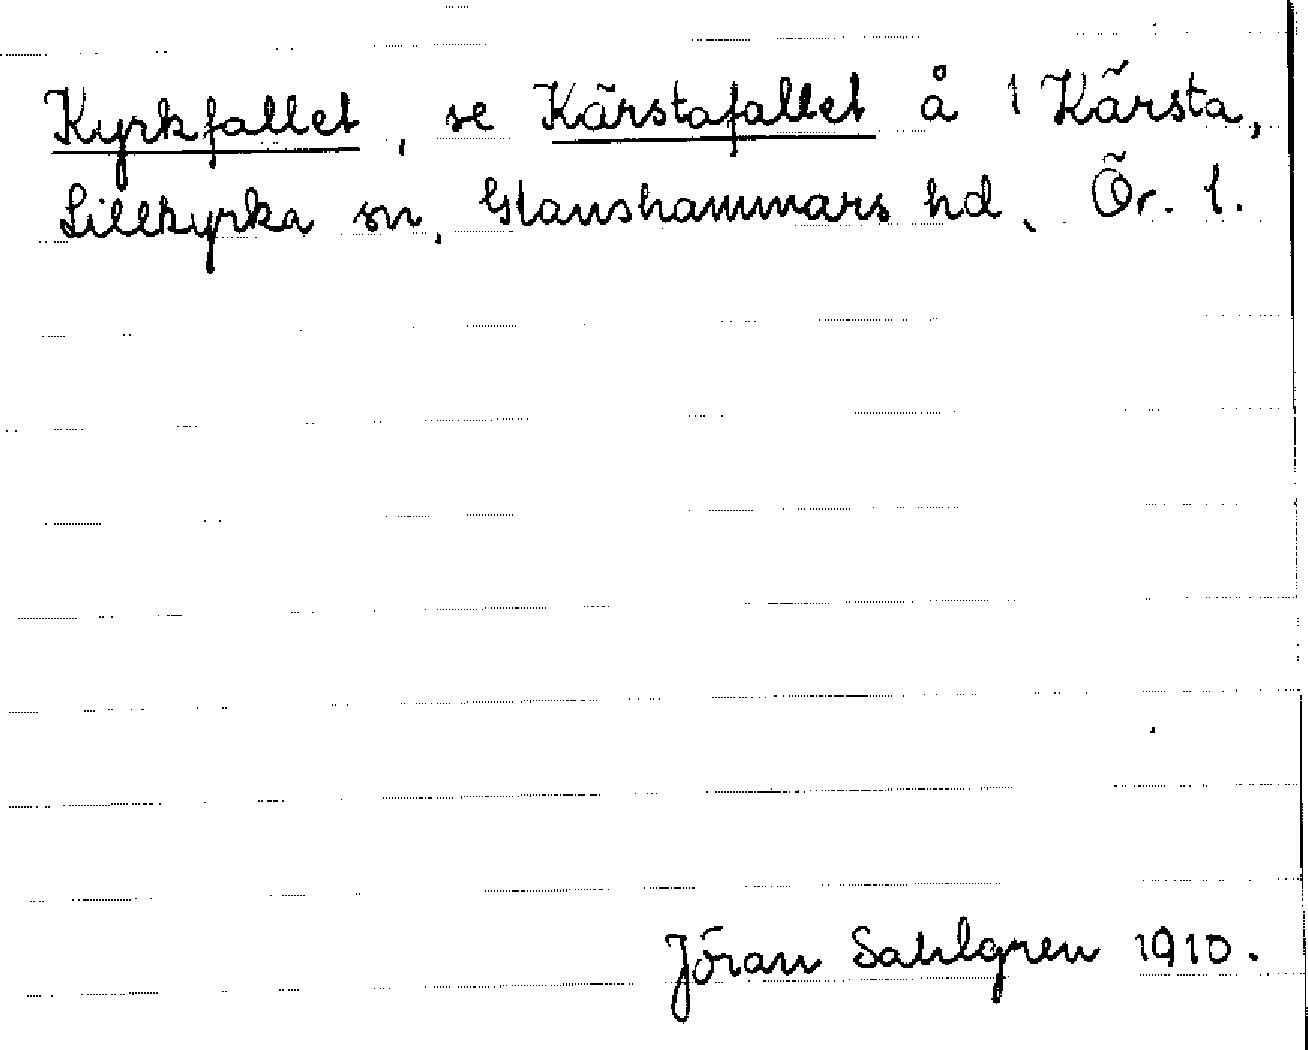 Kyrkfallet, se Kärstafallet å 1 Kärsta,
Lillkyrka sn, Glanshammars hd, Ör. l.
Jöran Sahlgren 1910.